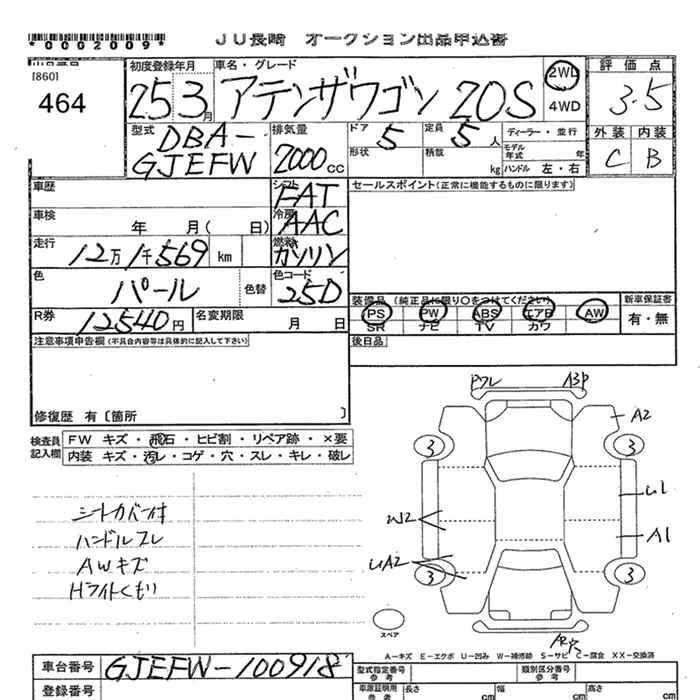 *0002009*
JU長崎 オークション出品申込書
[860]
464
初度登録年月
25 3月
車名・グレード
アテンザワゴン 20S
2WD
4WD
評価点
3.5
外装 内装
C B
型式
DBA-
GJEFW
排気量
2000cc
ドア 5
定員 5人
形状
積載 kg
ディーラー・並行
モデル年式 年
ハンドル 左・右
車歴
シフト FAT
冷房 AAC
セールスポイント(正常に機能するものに限ります)
車検 年 月( 日)
走行 12万1千569 km
燃料 ガソリン
色 パール
色替
色コード 25D
R券 12540円
名変期限 月 日
装備品(純正品に限り○をつけてください)
PS PW ABS エアB AW
SR ナビ TV カワ
新車保証書
有・無
後日品
注意事項申告欄(不具合内容等は具体的に記入して下さい)
修復歴 有〔箇所 〕
検査員記入欄
FW キズ・飛石・ヒビ割・リペア跡・×要
内装 キズ・汚レ・コゲ・穴・スレ・キレ・破レ
シートカバー付
ハンドルスレ
AWキズ
Hライトくもり
A3P
A2
3 3
U1
W2
A1
UA2
3 3
スペア
A-キズ E-エクボ U-凹み W-補修跡 S-サビ C-腐食 XX-交換済
車台番号 GJEFW-100918
登録番号
型式指定番号
参考
類別区分番号
参考
車庫証明用
参考
長さ cm
幅 cm
高さ cm